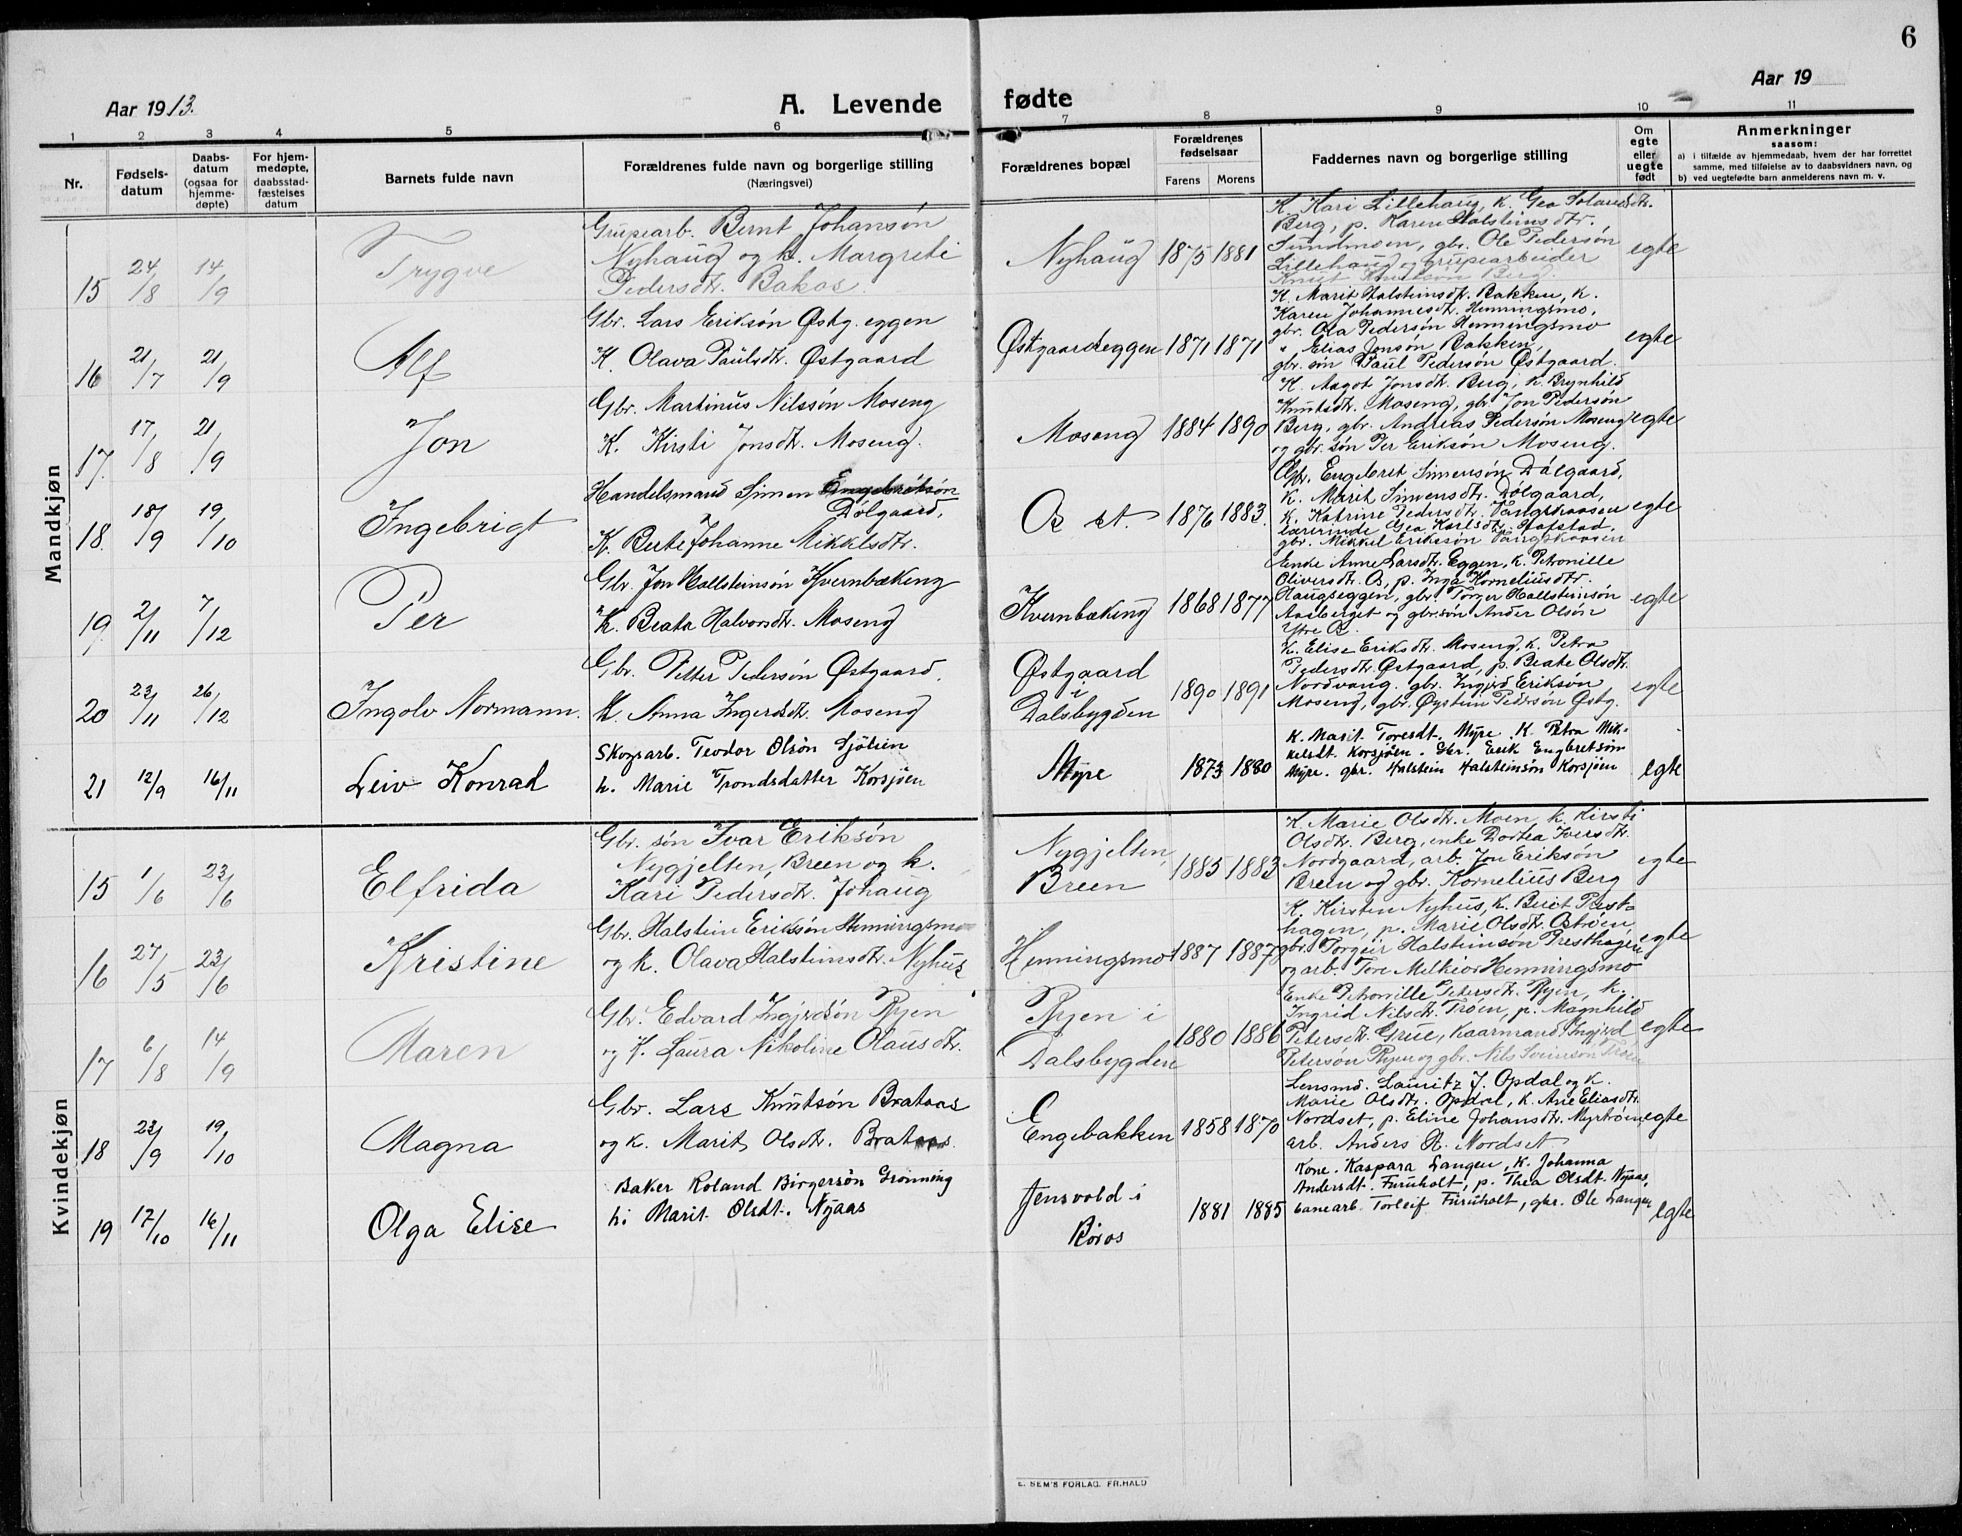 6
Aar 1913.
A. Levende fødte
Aar 19
1 2 3 4 5 6 7 8 9 10 11
Nr.
Fødsels-
datum
Daabs-
datum
(ogsaa for
hjemme-
døpte)
For hjem-
medøpte,
daabsstad-
fæstelses
datum
Barnets fulde navn
Forældrenes fulde navn og borgerlige stilling
(Næringsvei)
Forældrenes bopæl
Forældrenes
fødselsaar
Farens Morens
Faddernes navn og borgerlige stilling
Om
egte
eller
uegte
født
Anmerkninger
saasom:
a) i tilfælde av hjemmedaab, hvem der har forrettet
samme, med tilføielse av to daabsvidners navn, og
b) ved uegtefødte barn anmelderens navn m. v.
Mandkjøn
15 24/8 14/9 Trygve
Grupearb. Bernt Johansøn
Nyhaug og k. Margrete
Pedersdtr. Bakos.
Nyhaug 1875 1881
K. Kari Lillehaug, k. Gea
Berg, p. Karen Halsteinsdtr.
Sundmoen, gbr. Ole Pedersøn
Lillehaug og grupearbeider
Knut Knutsøn Berg.
egte
16 21/7 21/9 Alf
Gbr. Lars Eriksøn Østg. eggen
K. Olava Paulsdtr. Østgaard
Østgaardseggen 1871 1871
K. Marit Halsteinsdtr. Bakken, k.
Karen Johannesdtr. Henningsmo,
gbr. Ola Pedersøn Henningsmo
" Elias Jonsøn Bakken,
gbr. søn Paul Pedersøn Østgaard.
egte
17. 17/8 21/9 Jon
Gbr. Martinus Nilssøn Moseng
K. Kirsti Jonsdtr. Moseng.
Moseng 1884 1890
K. Aagot Jonsdtr. Berg, k. Brynhild
Knutsdtr. Moseng, gbr. Jon Pedersøn
Berg, gbr. Andreas Pedersøn Moseng
og gbr. søn Per Eriksøn Moseng.
egte
18. 18/9 19/10 Ingebrigt
Handelsmand Simen Engebretsøn
Dølgaard,
K. Berte Johanne Mikkelsdtr.
Os st. 1876 1883.
Gbr. Engebret Simensøn Dølgaard,
K. Marit Simensdtr. Dølgaard,
K. Katrine Pedersdtr. Vangskaasen
lærerinde Gea Karlsdtr. Hafstad,
gbr. Mikkel Erikssøn Vangskaasen
egte
19. 2/11 7/12 Per
Gbr. Jon Hallsteinsøn Kvernbækeng
K. Beata Halvorsdtr. Moseng
Kvernbækeng 1868 1877
Enke Anne Larsdtr. Eggen, k. Petronille
Oliversdtr. Os, p. Inga Kornelíusdtr.
Haugseggen, gbr. Torger Hallsteinsøn
Aasberget og gbr.søn Ander Olsøn
Ytre Os.
egte
20 23/11 26/12 Ingolv Normann.
Gbr. Petter Pedersøn Østgaard,
K. Anna Ingerdsdtr. Moseng
Østgaard
i
Dalsbygden
1890 1891
K. Elise Eriksdtr. Moseng, k. Petra
Pedersdtr. Østgaard, p. Beate Olsdtr.
Nordvang. gbr. Ingjerd Eriksøn
Moseng, gbr. Øystein Pedersøn Østg.
egte
21 12/9 16/11 Leiv Konrad
Skogsarb. Teodor Olsøn Sjölien
h. Marie Trondsdatter Korsjøen
Myre 1873 1880
K. Marit Toresdt. Myre. K. Petra Mik-
kelsdt. Korsjøen. Gbr. Erik Engbretsøn
Myre. gbr. Halstein Halsteinsøn Korsjøen
egte
Kvindekjøn
15 1/6 23/6 Elfrida
Gbr. søn Ivar Eriksøn
Nygjelten, Breen og k.
Kari Pedersdtr. Johaug
Nygjelten,
Breen
1885 1883
K. Marie Olsdtr. Moen, k. Kirsti
Olsdtr. Berg, enke Dortea Iversdtr.
Nordgaard, arb. Jon Eriksøn
Breen og gbr. Kornelius Berg
egte
16 27/5 23/6 Kristine
Gbr. Halstein Eriksøn Henningsmo
og k. Olava Halsteinsdtr. Nyhus
Henningsmo 1887 1887
K. Kirsten Nyhus, k. Berit Prest-
hagen, p. Marie Olsdtr. Østrøen,
gbr. Torgeir Halsteinsøn Presthagen
og arb. Tore Melkior Henningsmo
egte
17 6/8 14/9 Maren
Gbr. Edvard Ingjerdsøn Ryen
og K. Laura Nikoline Olausdtr.
Ryen i
Dalsbygden
1880 1886
Enke Petronille Petersdtr. Ryen, k.
Ingrid Nilsdtr. Trøen, p. Magnhild
Petersdtr. Grue, kaarmand Ingjerd
Petersøn Ryen og gbr. Nils Svensøn Trøen
egte
18 23/9 19/10 Magna
Gbr. Lars Knutsøn Brataas
og k. Marit Olsdtr. Brataas
Engebakken 1858 1870
Lensmd. Lauritz J. Opdal og k.
Marie Olsdtr. Opdal, k. Ane Eliasdtr.
Nordset, p. Eline Johansdtr. Myrtrøen
arb. Anders R. Nordset
egte
19 17/10 16/11 Olga Elise
Baker Roland Birgersøn Grönning
h. Marit Olsdt. Nyaas
Jensvold i
Röros
1881 1885
Kone. Kaspara Langen, K. Johanna
Andersdt. Furuholt, p. Thea Olsdt. Nyaas,
banearb. Torleif Furuholt, gbr. Ole Langen
egte
E. SEM'S FORLAG. FR.HALD